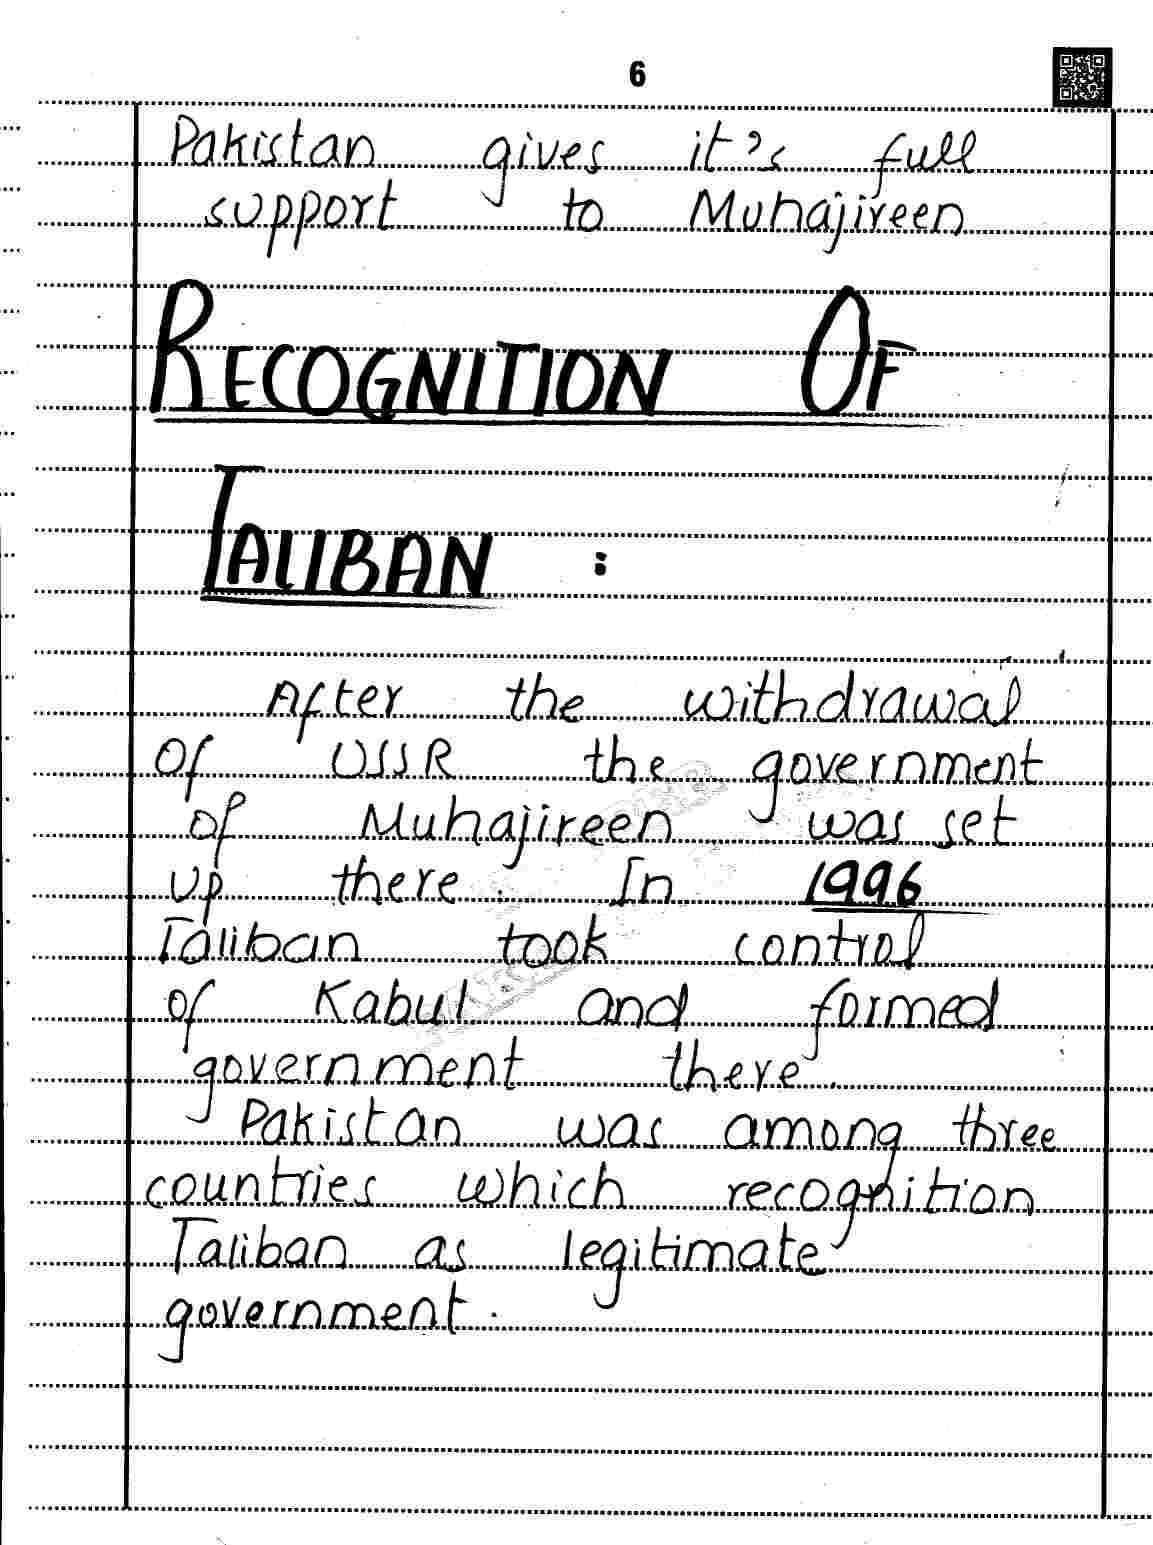 6
Pakistan gives it's full
support to Muhajireen
RECOGNITION OF
TALIBAN :
After the withdrawal
of USSR the government
of Muhajireen was set
up there. In 1996
Taliban took control
of Kabul and formed
government there.
Pakistan was among three
countries which recognition
Taliban as legitimate
government.